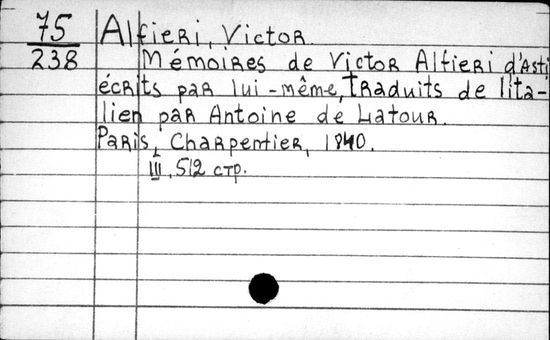 75 Alfieri, Victor
238 Mémoires de Victor Alfieri d'Asti
écrits par lui-même, traduits de l'ita-
lien par Antoine de Latour.
Paris, Charpentier, 1840.
III, 512 стр.